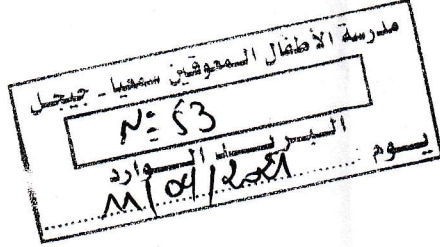 مدرسة الأطفال المعوقين سمعيا - جيجل
N= 53
البريد الوارد
يوم 11/04/2021